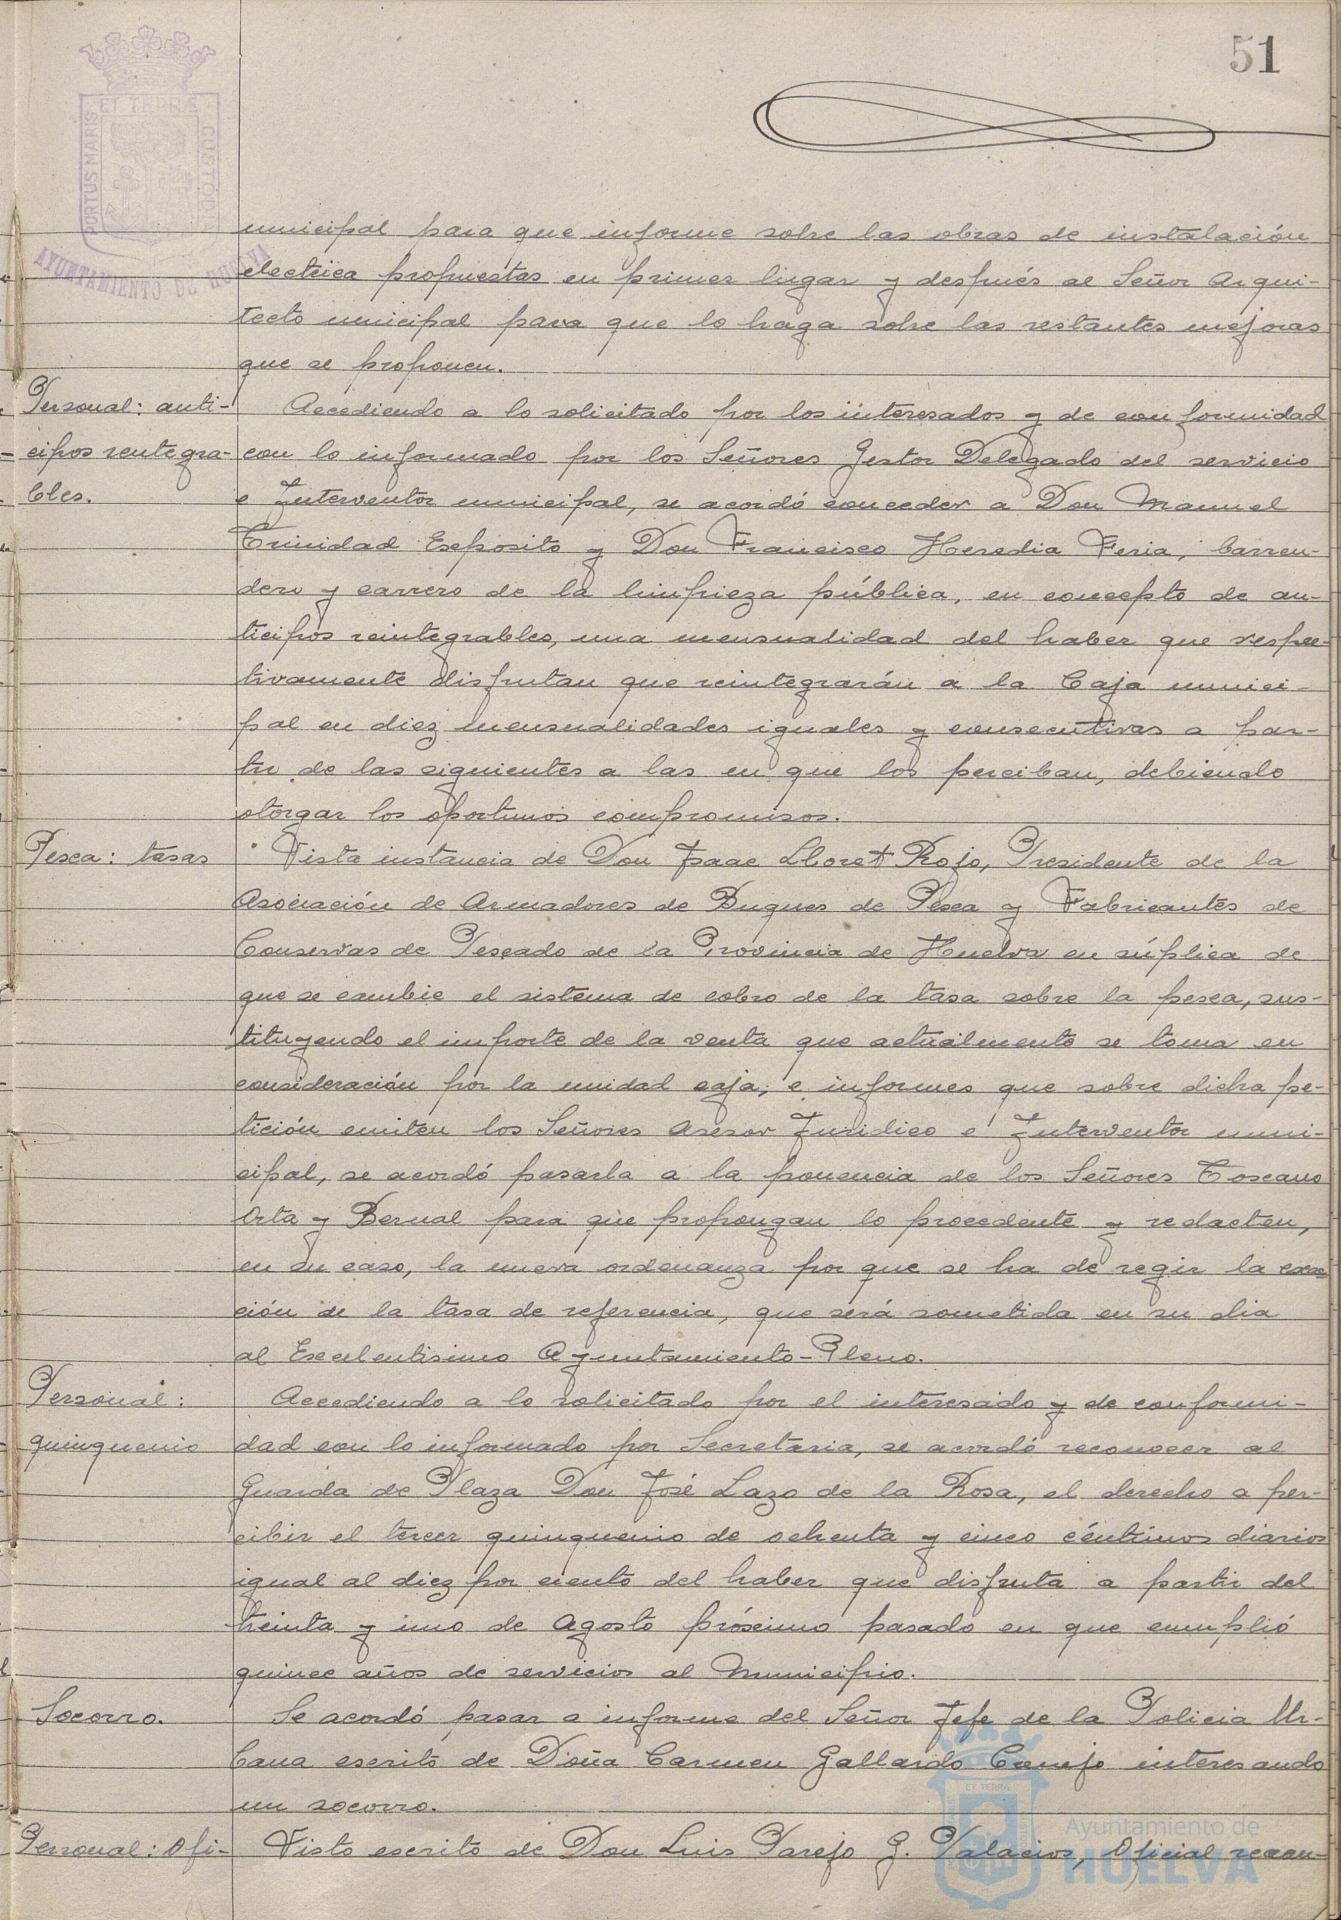 51
PORTUS MARIS ET TERRÆ CUSTODIA
AYUNTAMIENTO DE HUELVA
municipal para que informe sobre las obras de instalación
electrica propuestas en primer lugar y después al Señor Arqui-
tecto municipal para que lo haga sobre las restantes mejoras
que se proponen.
Personal: anti-
cipos reintegra-
bles.
Accediendo a lo solicitado por los interesados y de conformidad
con lo informado por los Señores Gestor Delegado del servicio
e Interventor municipal, se acordó conceder a Don Manuel
Trinidad Esposito y Don Francisco Heredia Feria, barren-
dero y carrero de la limpieza pública, en concepto de an-
ticipos reintegrables, una mensualidad del haber que respec-
tivamente disfrutan que reintegrarán a la Caja munici-
pal en diez mensualidades iguales y consecutivas a par-
tir de las siguientes a las en que los perciban, debiendo
otorgar los oportunos compromisos.
Pesca: tasas
Vista instancia de Don Isaac Lloret Rojo, Presidente de la
Asociación de Armadores de Buques de Pesca y Fabricantes de
Conservas de Pescado de la Provincia de Huelva en súplica de
que se cambie el sistema de cobro de la tasa sobre la pesca, sus-
tituyendo el importe de la venta que actualmente se toma en
consideración por la unidad caja, e informes que sobre dicha pe-
tición emiten los Señores Asesor Juridico e Interventor muni-
cipal, se acordó pasarla a la ponencia de los Señores Toscano
Orta y Bernal para que propongan lo procedente y redacten,
en su caso, la nueva ordenanza por que se ha de regir la exac-
ción de la tasa de referencia, que será sometida en su dia
al Excelentisimo Ayuntamiento-Pleno.
Personal:
quinquenio
Accediendo a lo solicitado por el interesado y de conformi-
dad con lo informado por Secretaria, se acordó reconocer al
Guarda de Plaza Don José Lazo de la Rosa, el derecho a per-
cibir el tercer quinquenio de ochenta y cinco céntimos diarios
igual al diez por ciento del haber que disfruta a partir del
treinta y uno de Agosto próximo pasado en que cumplió
quince años de servicios al Municipio.
Socorro.
Se acordó pasar a informe del Señor Jefe de la Policia Ur-
bana escrito de Doña Carmen Gallardo Conejo interesando
un socorro.
Personal: Ofi-
Visto escrito de Don Luis Parejo G. Palacios, Oficial recau-
Ayuntamiento de
HUELVA